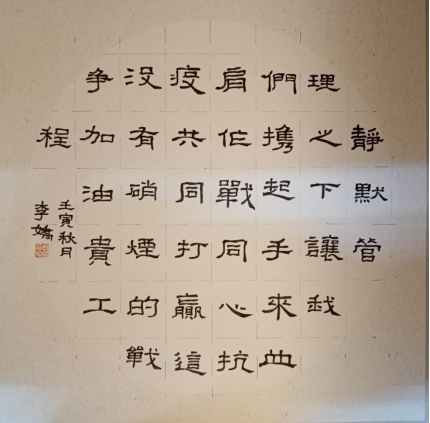 靜默管
理之下讓我
們携起手來並
肩作戰同心抗
疫共同打贏這
没有硝煙的戰
争加油貴工
程
壬寅秋月
李嬌